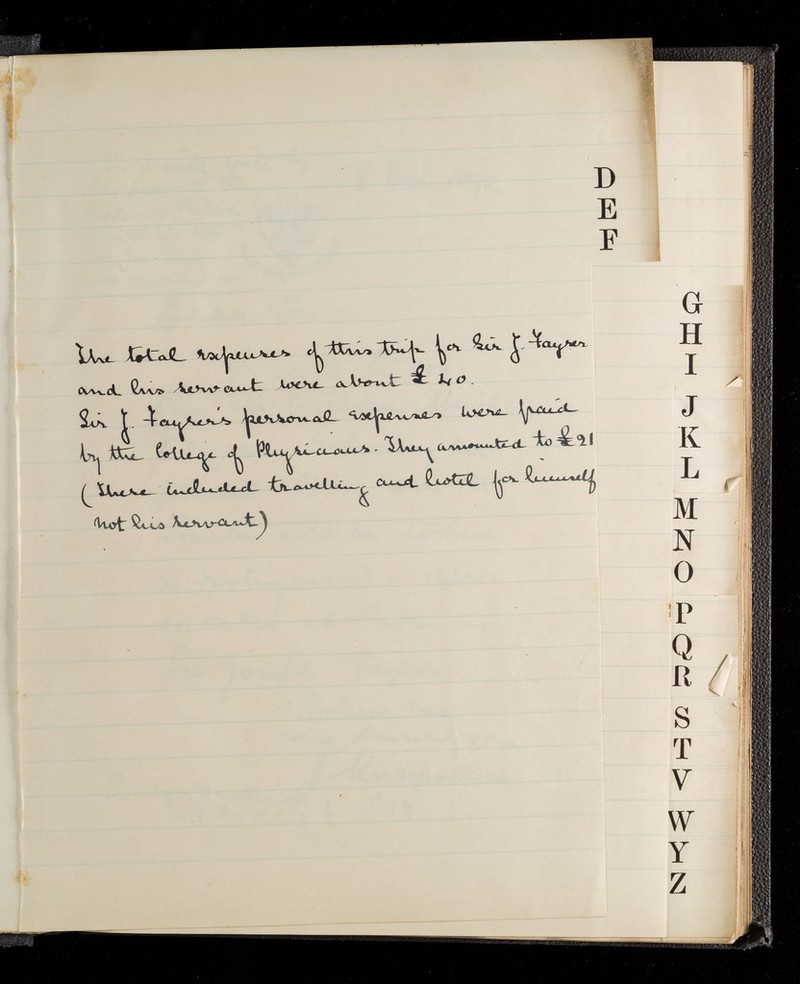 The total expenses of this trip for Sir J. Fayrer
and his servant were about £ 40.
Sir J. Fayrer's personal expenses were paid
by the College of Physicians. They amounted to £21
(These included travelling and hotel for himself
not his servant)
D
E
F
G
H
I
J
K
L
M
N
O
P
Q
R
S
T
V
W
Y
Z